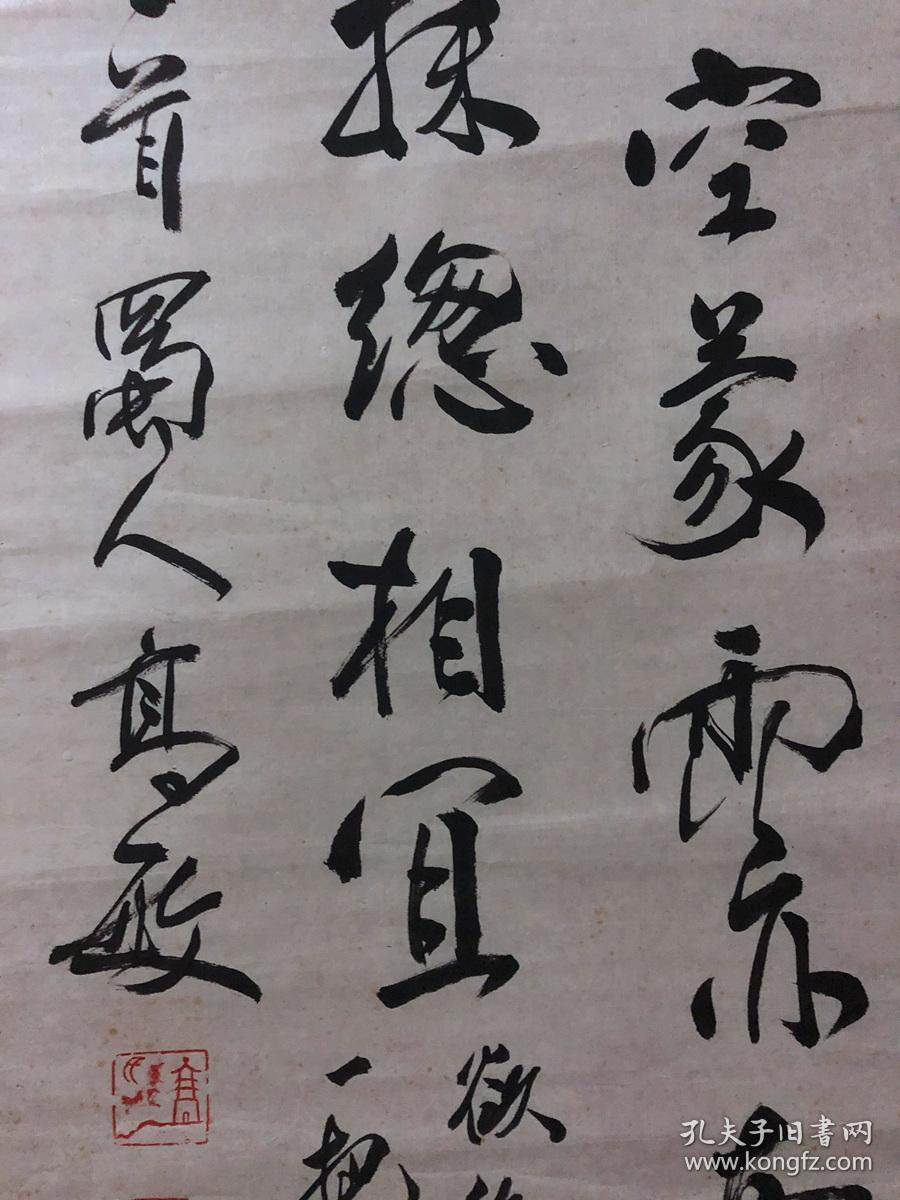 空蒙雨亦
抹總相宜
欲
一
首蜀人高敏
高
孔夫子旧書网
www.kongfz.com